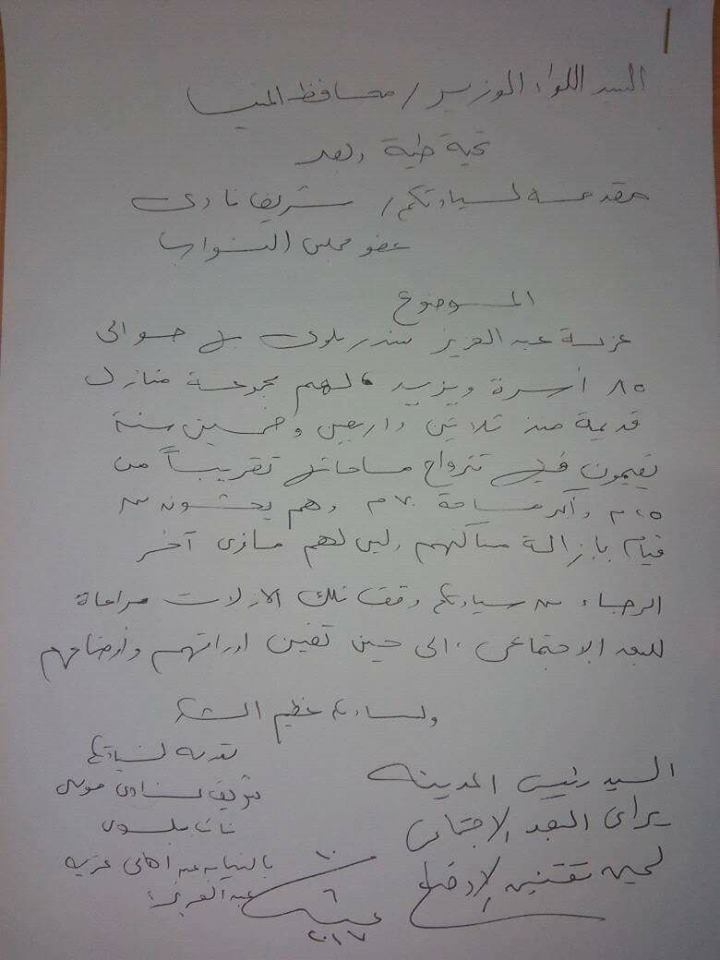 السيد اللواء الوزير / محافظ المنيا
تحية طيبة وبعد
مقدمه لسيادتكم / شريف نادى
عضو مجلس النواب
الموضوع
عزبة عبد العزيز بندر ملوى بها حوالى
٨٥ أسرة ويزيد لهم مجموعة منازل
قديمة منذ ثلاثين واربعين وخمسين سنة
يقيمون فيها تترواح مساحاتها تقريباً من
٢٥م وأكبر مساحة ٧٠م وهم يخشون من
قيام بازالة مساكنهم وليس لهم مأوى آخر
الرجاء من سيادتكم وقف تلك الازلات مراعاة
للبعد الاجتماعى ، الى حين تقنين اوراقهم وأوضاعهم
ولسيادتكم عظيم الشكر
مقدمه لسيادتكم
شريف نادى موسى
نائب ملوى
بالنيابه عن اهالى عزبة
عبد العزيز
السيد رئيس المدينه
يراعى البعد الاجتماعى
لحين تقنين الاوضاع
١٠
٦
٢٠١٧